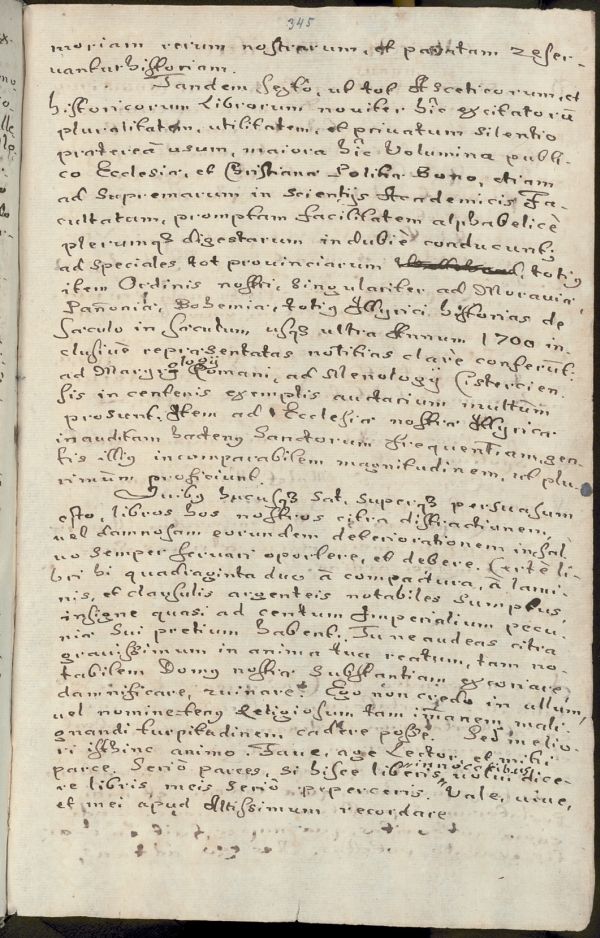 345
moriam rerum nostrarum, et patriam reser-
vantur historiam.
Tandem sexto, ut tot Asceticorum, et
historicorum Librorum noviter hic excitatorū
pluralitatem, utilitatem, et privatum silentio
præterea usum, maiora hic Volumina publi-
co Ecclesiæ, et Christianæ Politiæ Bono, etiam
ad Supremarum in Scientijs Academicis Fa-
cultatum, promptam facilitatem alphabeticè
plerumq digestarum indubiè conducunt,
ad speciales tot provinciarum totiq
item Ordinis nostri, singulariter ad Moraviæ,
Pañoniæ, Bohemiæ, totiq Illyrici historias de
sæculo in sæculum usq ultra Annum 1700 in-
clusivè repræsentatas notitias clarè conferunt:
ologiū
ad Martyr Romani, ad Menologij Cistercien-
sis in centenis exemplis audacium multùm
prosunt. Item ad Ecclesiæ nostræ Illyricæ
inauditam hactenq Sanctorum frequentiam, gen-
tis illiq incomparabilem magnitudinem, ut plu-
rimùm proficiunt.
Quibq hucusq sat, superq persuasum
esto, libros hos nostros citra distractionem,
vel damnosam eorundem deteriorationem in sal-
vo semper servari oportere, et debere. Certè li-
bri hi quadraginta duo à compactura, à lami-
nis, et clausulis argenteis notabiles sumptus,
insigne quasi ad centum Imperialium pecu-
niæ sui pretium habent. Tune audeas citra
gravissimum in anima tua reatum, tam no-
tabilem Domq nostræ substantiam excoriare,
damnificare, ruinare? Ego non credo in ullum,
vel nomine tenq Religiosum tam im̄anem mali-
gnandi turpitudinem cadere posse. Sed melio-
ri isthinc animo. Fave, age Lector, et mihi
parce. Seriò parces, si hisce liberis innocentibus, volui dice-
re libris, meis seriò peperceris. Vale, vive,
et mei apud Altissimum recordare